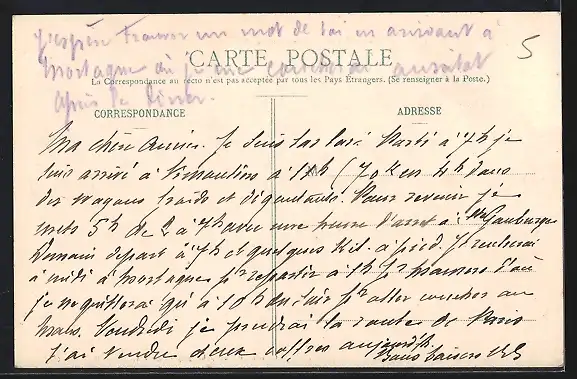 J'espère trouver un mot de toi en arrivant à
Mortagne où je me coucherai aussitôt
après le dîner.
5
CARTE POSTALE
La Correspondance au recto n'est pas acceptée par tous les Pays Étrangers. (Se renseigner à la Poste.)
CORRESPONDANCE
ADRESSE
Ma chère Je suis Parti à 7h je
suis arrivé à à 11h (70 K en 4h dans
des wagons froids et dégoutants. Pour revenir je
mets 5h de 2 à 7h avec une heure d'arret à Ste Gauburge
Demain départ à 7h et quelques Kil. à pied. Je rentrerai
à midi à Mortagne pr repartir à 1h pr Mamers d'où
je ne quitterai qu'à 10h du soir pr aller coucher au
Mans. Vendredi je prendrai la route de Paris
J'ai vendu deux coffres aujourd'hui
Bons baisers